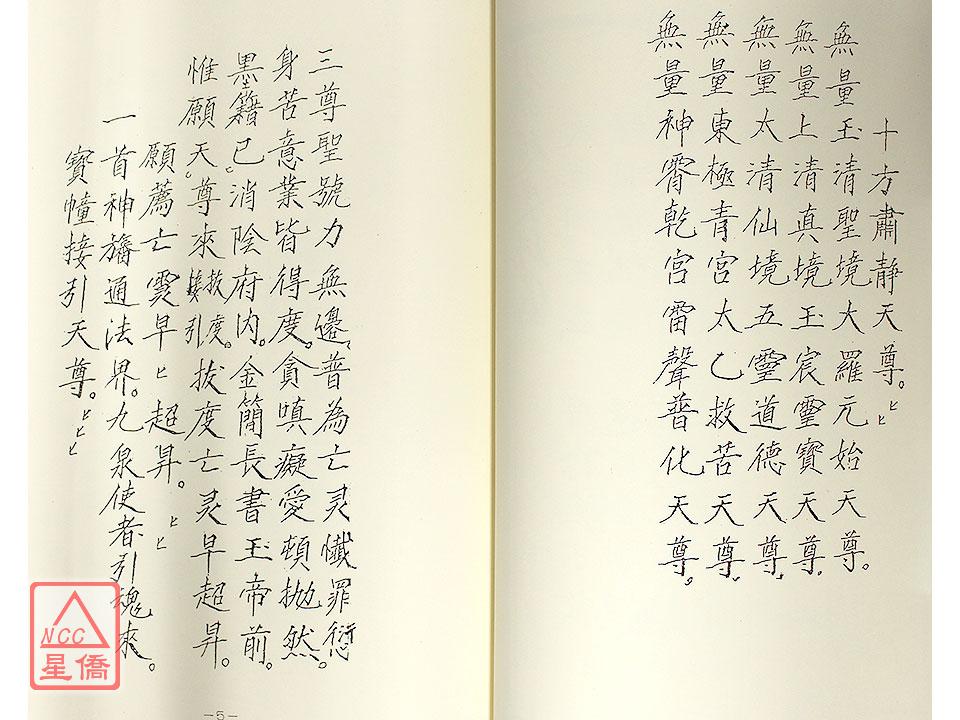 十方肅靜天尊。ヒヒ
無量玉清聖境大羅元始天尊。
無量上清真境玉宸靈寶天尊。
無量太清仙境五靈道德天尊。
無量東極青宮太乙救苦天尊。
無量神霄乾宮雷聲普化天尊。
三尊聖號力無邊。普為亡灵懺罪愆
身苦意業皆得度。貪嗔癡愛頓拋然。
墨籍已消陰府內。金簡長書玉帝前。
惟願天尊來救度。接引。拔度亡灵早超昇。
願薦亡霛早ヒ超昇。ヒヒ
一首神旛通法界。九泉使者引魂來。
寶幢接引天尊。ヒヒヒ
—5—
NCC
星僑